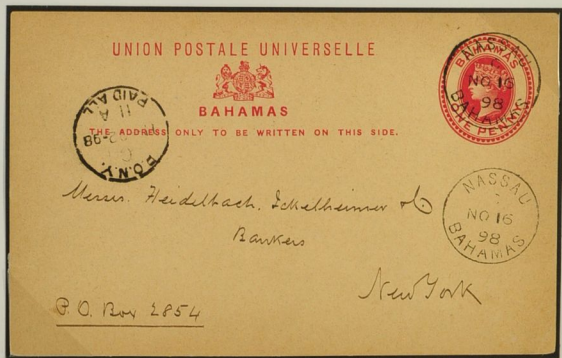 UNION POSTALE UNIVERSELLE
BAHAMAS
THE ADDRESS ONLY TO BE WRITTEN ON THIS SIDE.
BAHAMAS
ONE PENNY
NASSAU
NO 16
98
BAHAMAS
P.O.N.Y.
98
11 A
PAID ALL
NASSAU
NO 16
98
BAHAMAS
Messrs. Heidelbach, Ickelheimer & Co
Bankers
New York
P.O. Box 2854